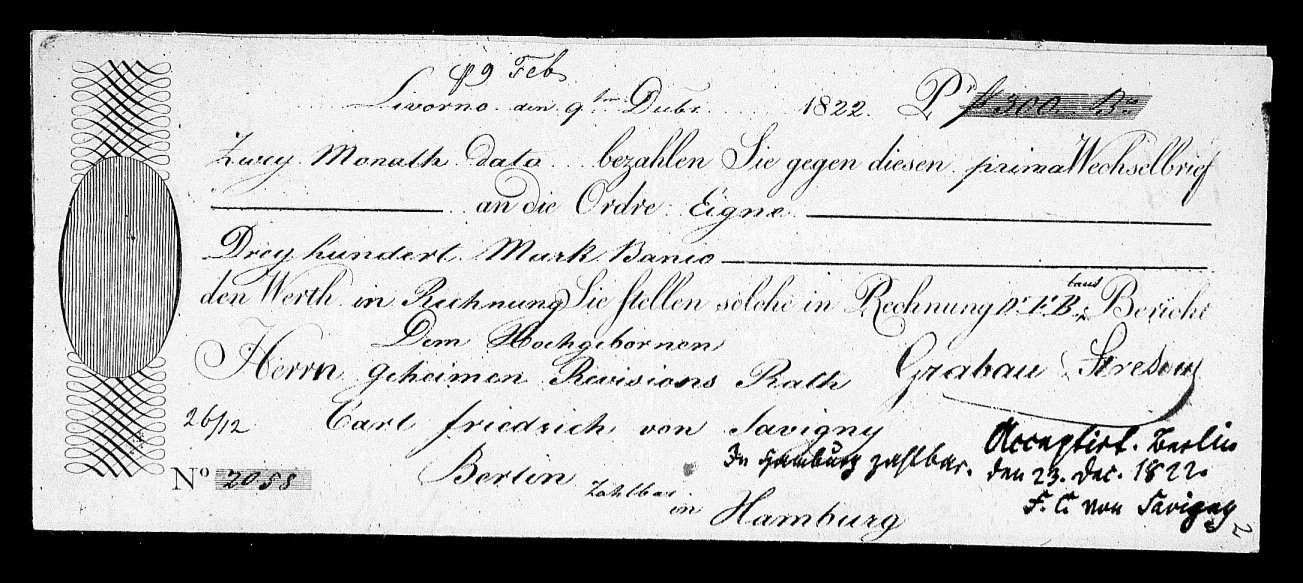 9 Feb
Livorno den 9 Dubr. 1822. Pr ƒ 300 Bo
Zwey Monath dato bezahlen Sie gegen diesen prima Wechselbrief
an die Ordre Eigne
Drey hundert Mark Banco
den Werth in Rechnung Sie stellen solche in Rechnung laut Bericht
Dem Hochgebornen
Herrn geheimen Revisions Rath Grabau Stresow
26/12 Carl friedrich von Savigny
Acceptirt. Berlin
In Hamburg zahlbar. den 23. Dec. 1822.
No 2058 Berlin zahlbar in Hamburg
F. C. von Savigny
2